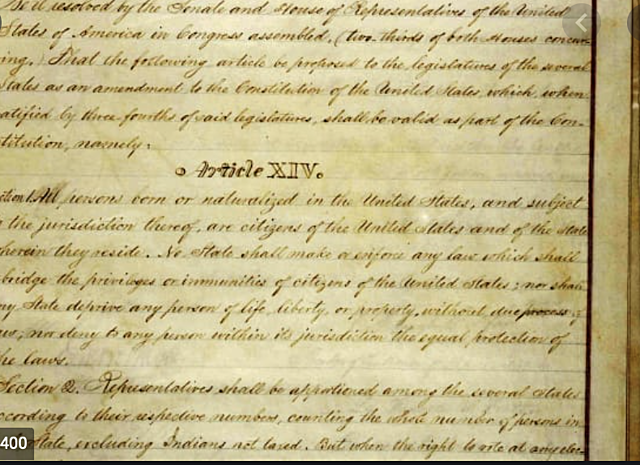 Be it resolved by the Senate and House of Representatives of the United
States of America in Congress assembled, (two-thirds of both Houses concur-
ring,) That the following article be proposed to the legislatures of the several
States as an amendment to the Constitution of the United States, which, when
ratified by three-fourths of said legislatures, shall be valid as part of the Con-
stitution, namely:
Article XIV.
Section 1. All persons born or naturalized in the United States, and subject
to the jurisdiction thereof, are citizens of the United States and of the State
wherein they reside. No State shall make or enforce any law which shall
abridge the privileges or immunities of citizens of the United States; nor shall
any State deprive any person of life, liberty, or property, without due process of
law; nor deny to any person within its jurisdiction the equal protection of
the laws.
Section 2. Representatives shall be apportioned among the several States
according to their respective numbers, counting the whole number of persons in
State, excluding Indians not taxed. But when the right to vote at any elec-
400